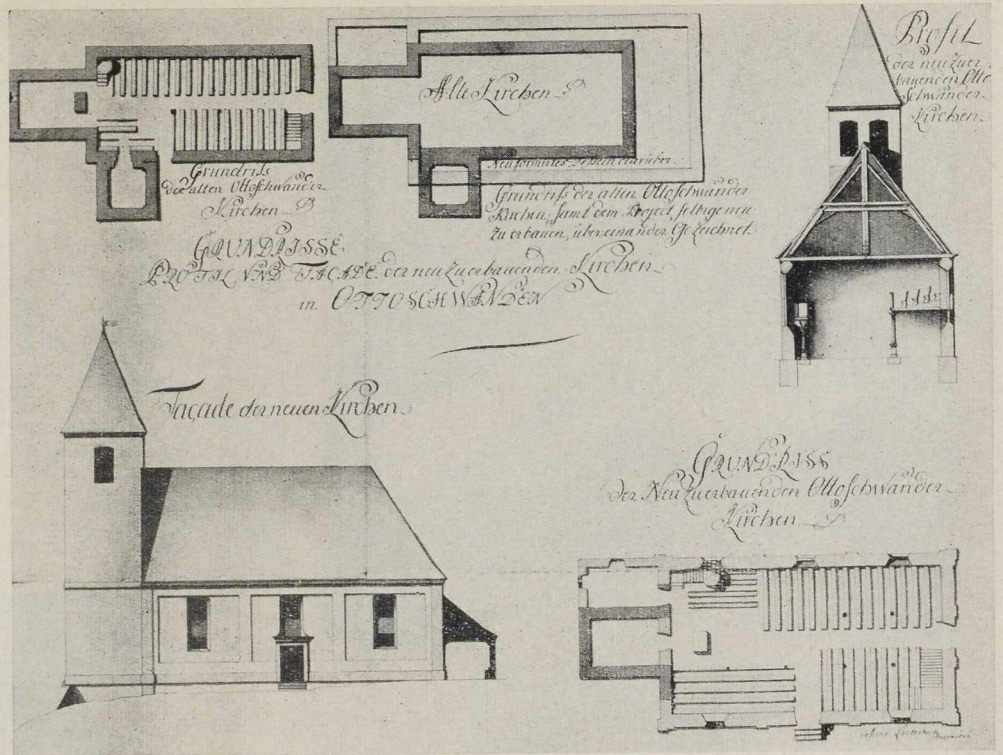 Grundriſs
der alten Ottoschwander
Kirchen
Alte Kirchen
Neuformirtes Dessein darüber
Grundriſs der alten Ottoschwander
Kirchen, samt dem Project, selbige neu
zu erbauen, übereinander Gezeichnet
Profil
der neu zuer
bauenden Otto
schwander
Kirchen
GRUNDRISSE
PROFIL VND FACADE der neu zu erbauenden Kirchen
in OTTOSCHWANDEN
Façade der neuen Kirchen
GRUNDRISS
Der Neu zu erbauenden Ottoschwander
Kirchen